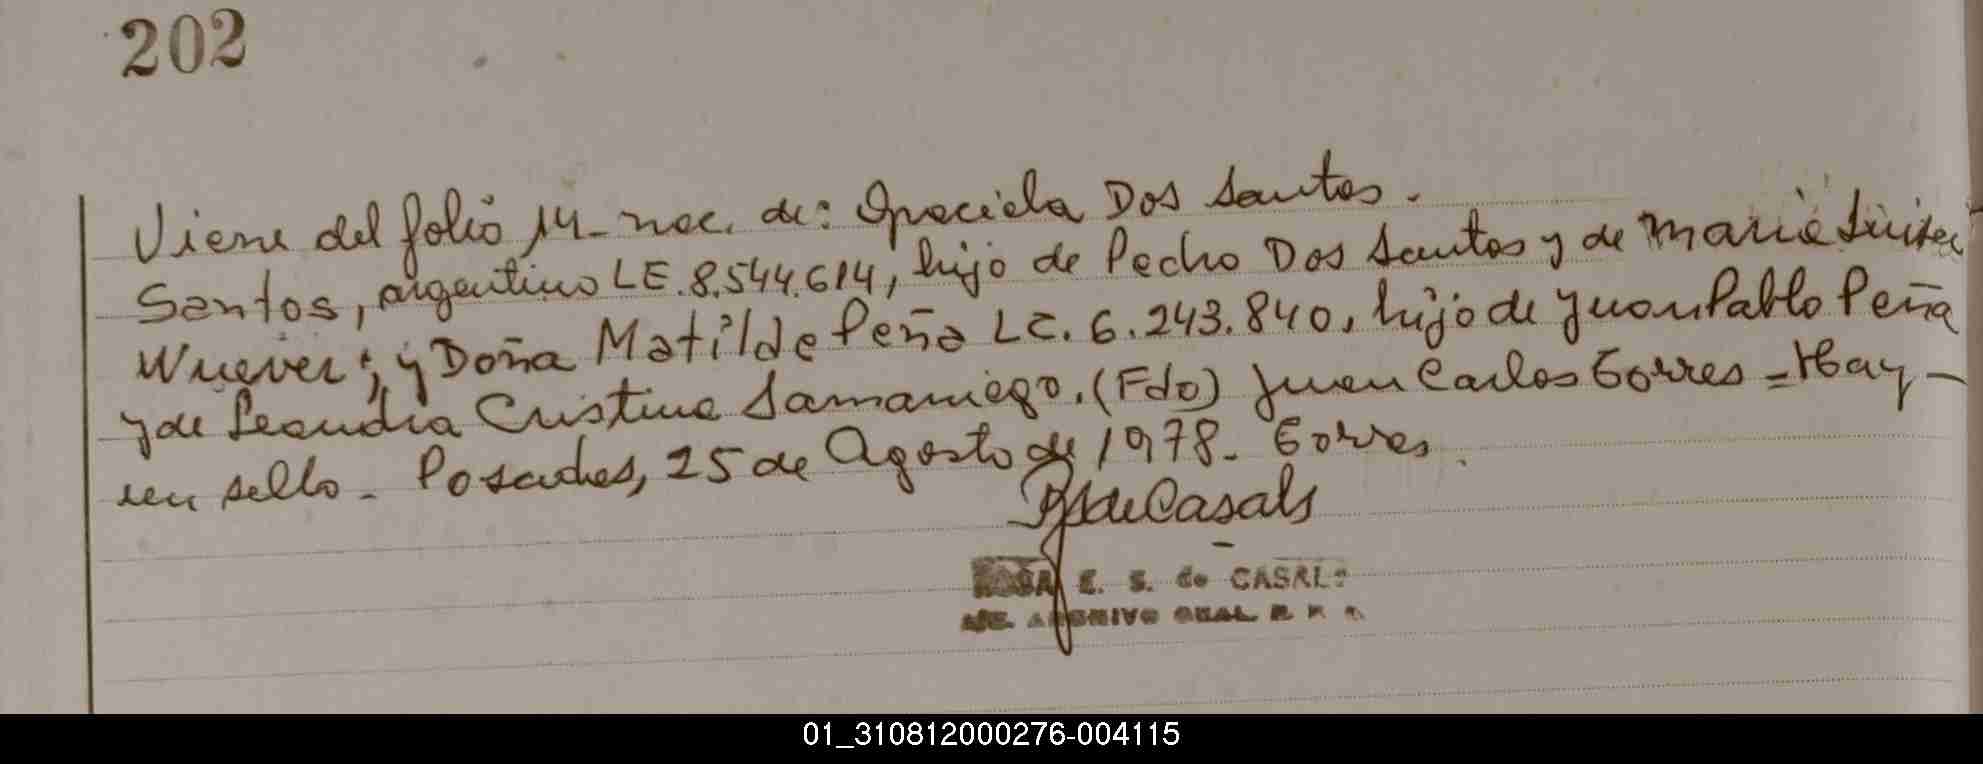 202
Viene del folio 14 - nac. de: Graciela Dos Santos.
Santos, argentino LE. 8.544.614, hijo de Pedro Dos Santos y de Maria
Wuever; y Doña Matilde Peña LC. 6.243.840, hija de Juan Pablo Peña
y de Leandra Cristina Samaniego. (Fdo) Juan Carlos Torres = Hay -
un sello - Posadas, 25 de Agosto de 1978 - Torres.
de Casals
ROSA E. S. de CASALS
ARCHIVO GRAL R P
01_310812000276-004115